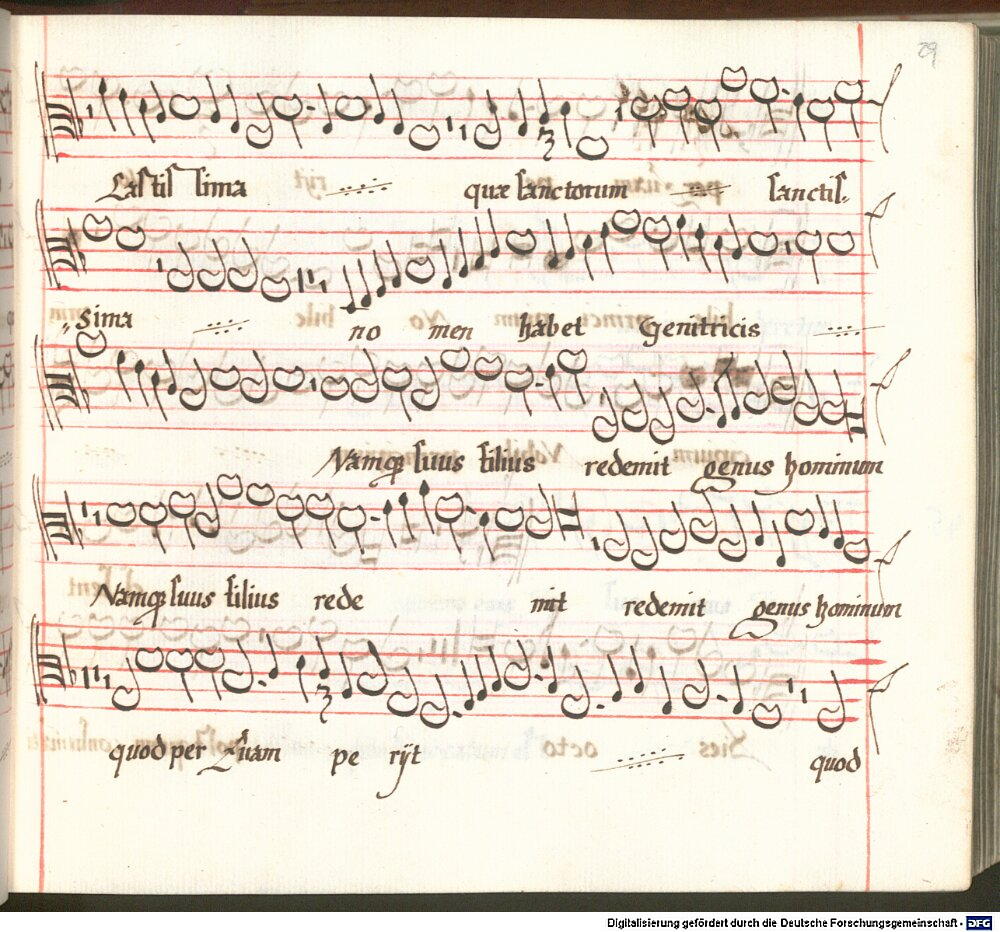 29
Castis sima quæ sanctorum sanctis-
sima no men habet Genitricis
Namq suus filius redemit genus hominum
Namq suus filius rede mit redemit genus hominum
quod per Euam pe rijt quod
Digitalisierung gefördert durch die Deutsche Forschungsgemeinschaft - DFG